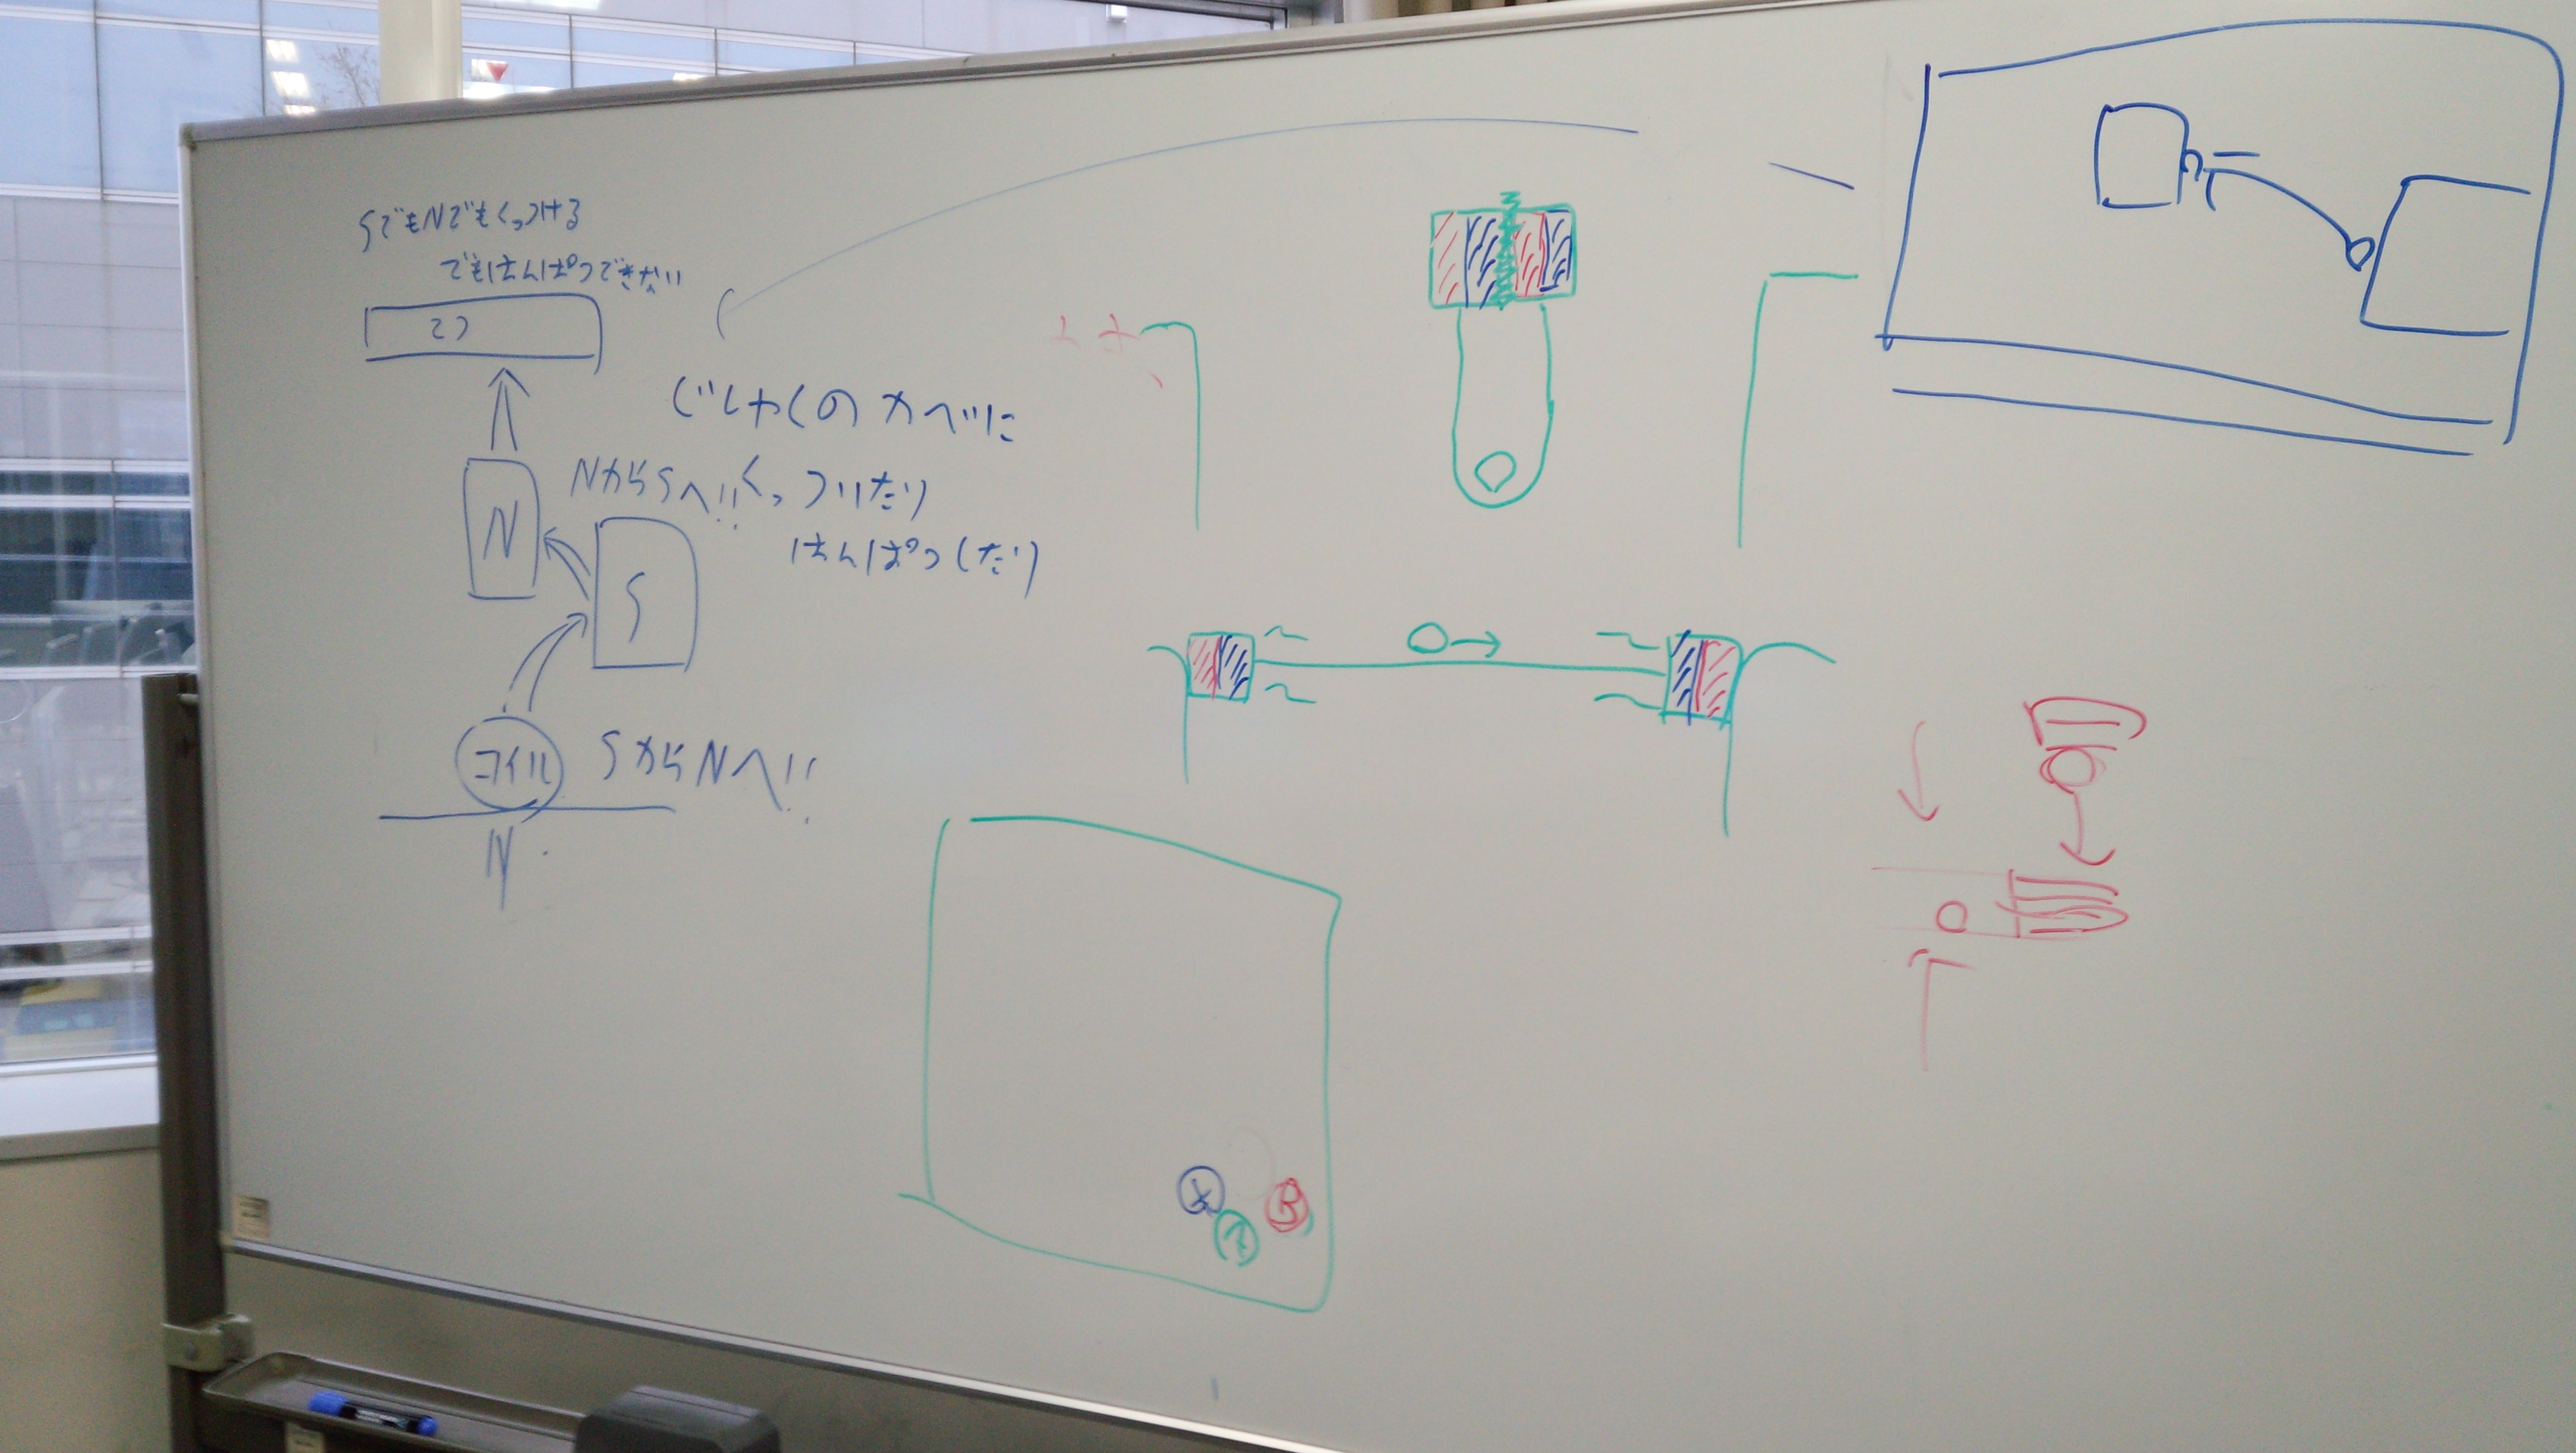 SでもNでもくっつける
でもはんぱつできない
てつ
じしゃくのカベに
NからSへ!! くっついたり
はんぱつしたり
N
S
コイル
SからNへ!!
N